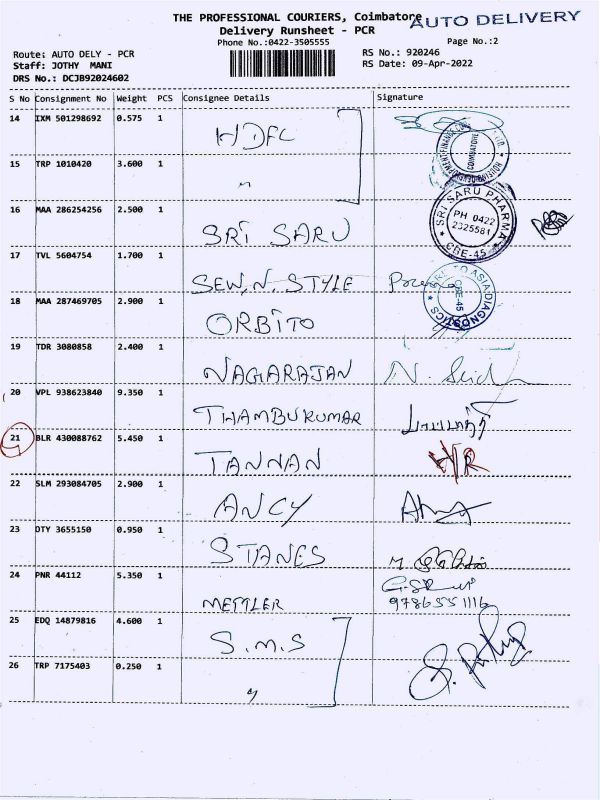 THE PROFESSIONAL COURIERS, Coimbatore
AUTO DELIVERY
Delivery Runsheet - PCR
Phone No.:0422-3505555
Page No.:2
Route: AUTO DELY - PCR
RS No.: 920246
Staff: JOTHY MANI
RS Date: 09-Apr-2022
DRS No.: DCJB92024602
S No Consignment No Weight PCS Consignee Details Signature
14 IXM 501298692 0.575 1 HDFC
COIMBATORE
15 TRP 1010420 3.600 1 "
16 MAA 286254256 2.500 1 SRI SARU
SRI SARU PHARMA
PH 0422
2325581
CBE-45
17 TVL 5604754 1.700 1 SEW.N. STYLE
18 MAA 287469705 2.900 1 ORBITO
ORBITO ASIA DIAGNOSTICS
CBE-45
19 TDR 3080858 2.400 1 NAGARAJAN
20 VPL 938623840 9.350 1 THAMBUKUMAR
21 BLR 430088762 5.450 1 TANNAN
22 SLM 293084705 2.900 1 ANCY
23 DTY 3655150 0.950 1 STANES
24 PNR 44112 5.350 1 METTLER
9786551116
25 EDQ 14879816 4.600 1 S.M.S
26 TRP 7175403 0.250 1 "